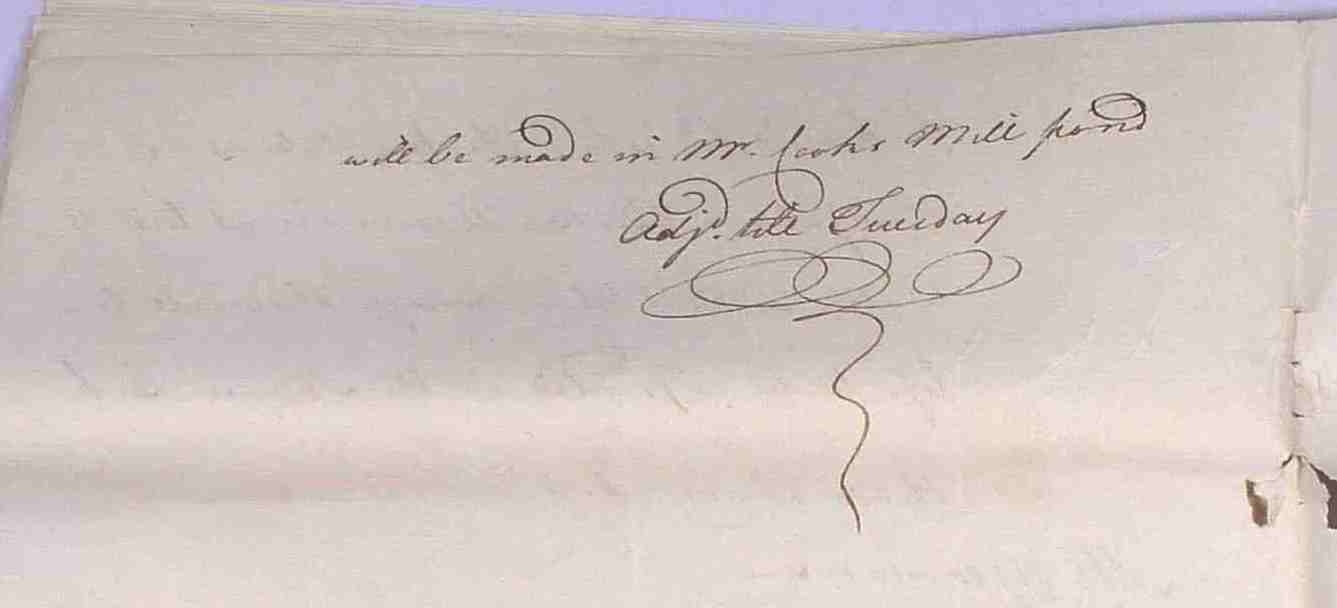 will be made in Mr. Cooks Mill pond
Adj. till Tuesday